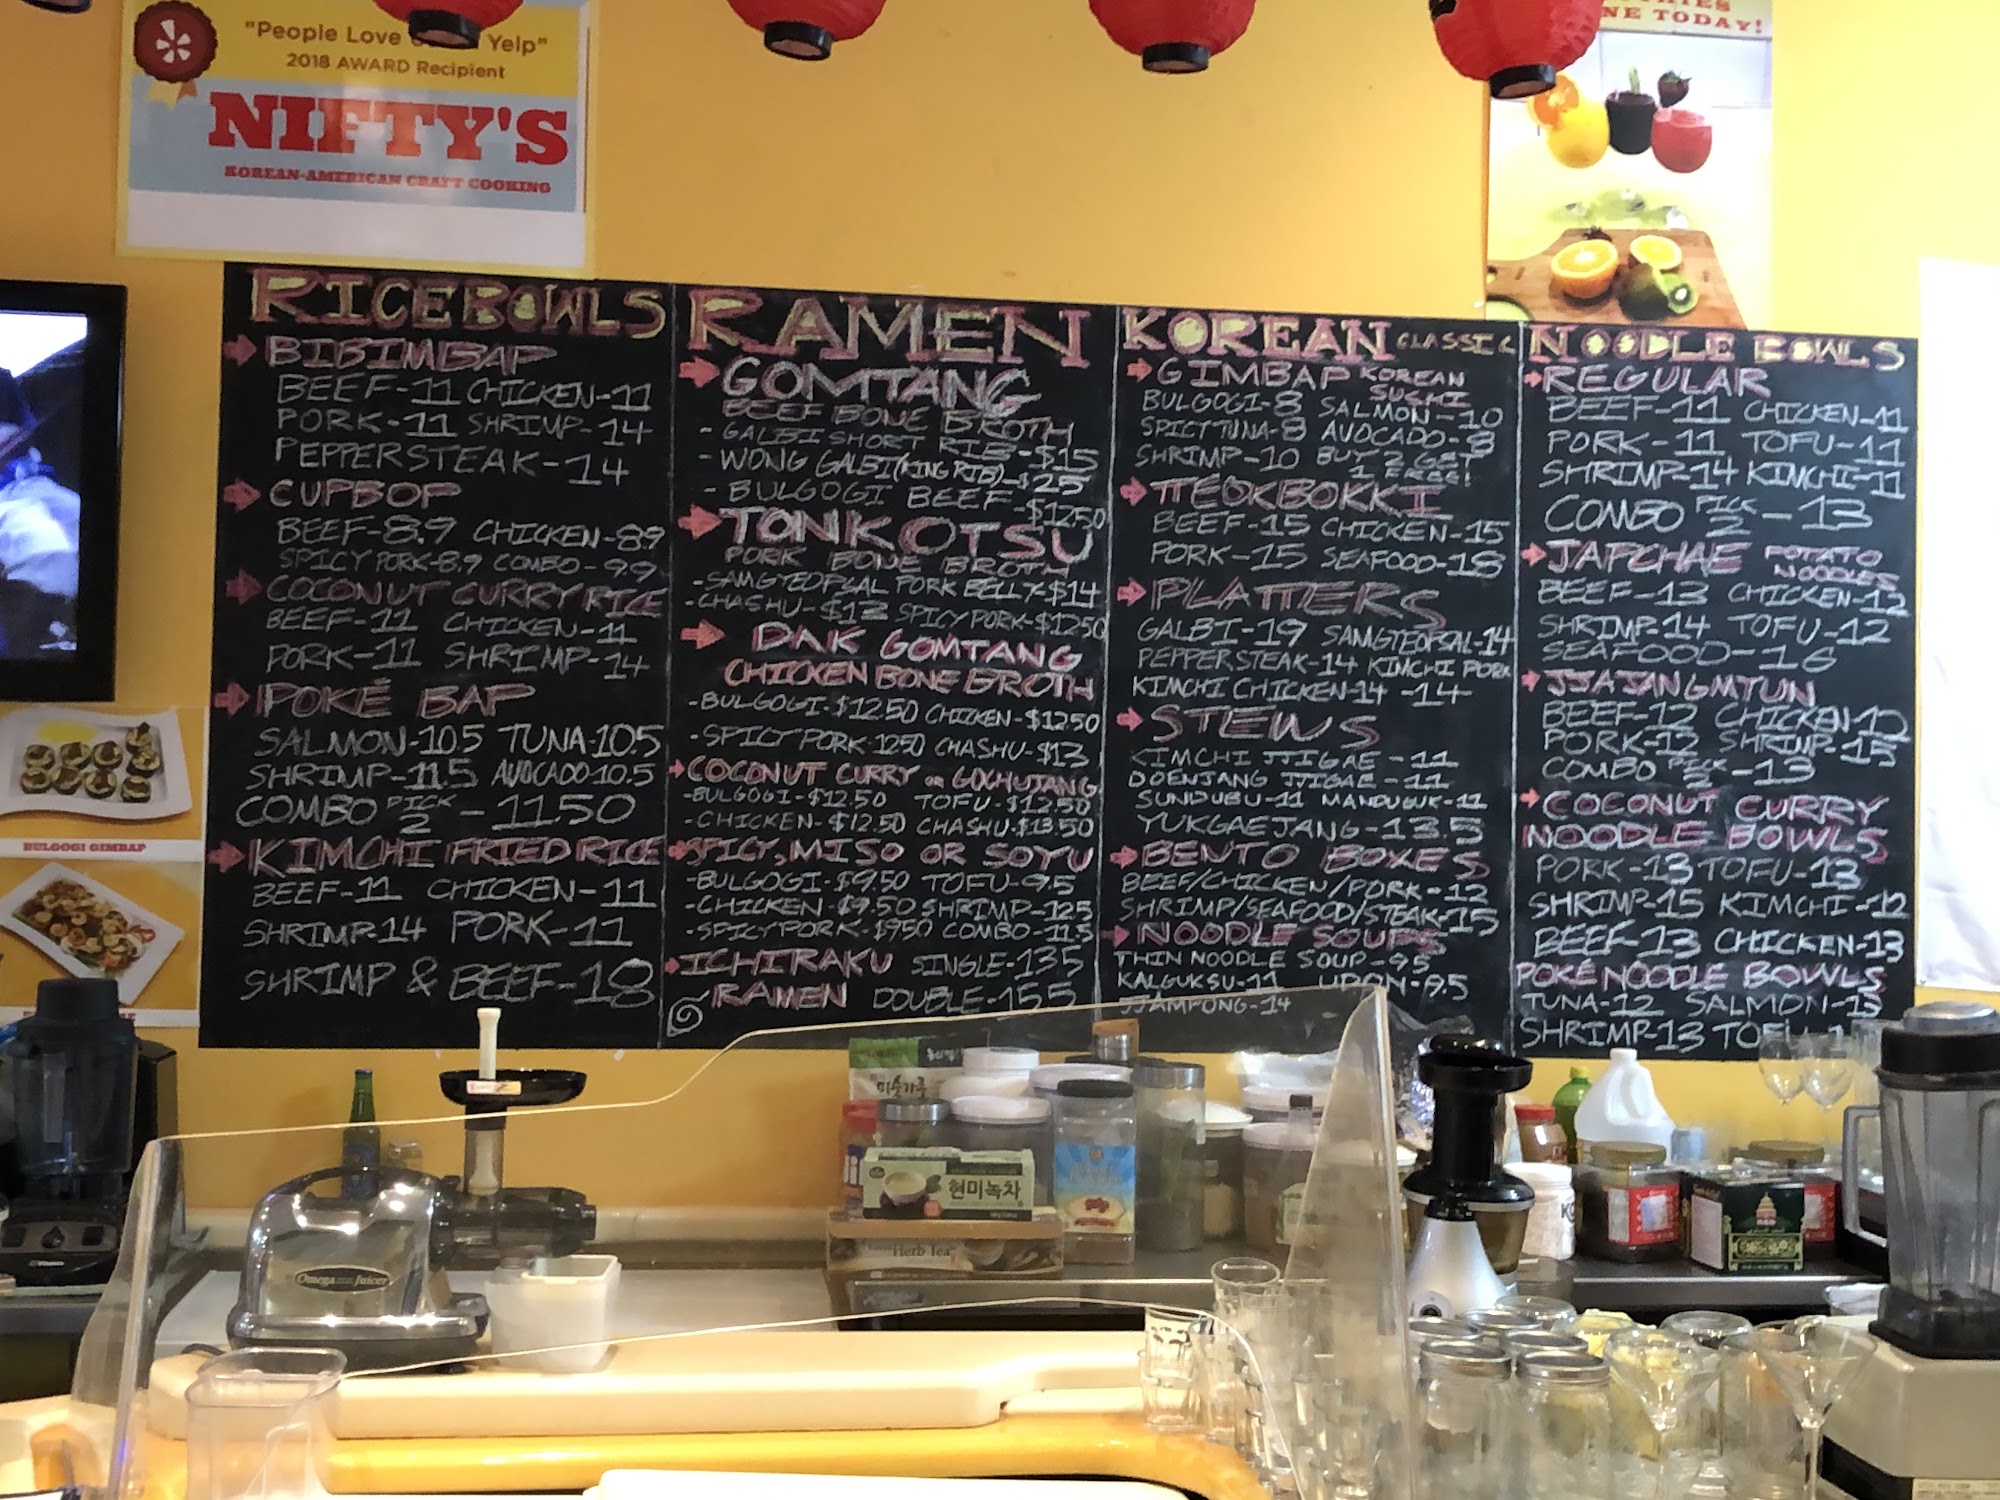 "People Love Yelp"
2018 AWARD Recipient
NIFTY'S
KOREAN-AMERICAN CRAFT COOKING
NE TODAY!
RICE BOWLS
BIBIMBAP
BEEF-11 CHICKEN-11
PORK-11 SHRIMP-14
PEPPERSTEAK-14
CUPBOP
BEEF-8.9 CHICKEN-8.9
SPICY PORK-8.9 COMBO-9.9
COCONUT CURRY RICE
BEEF-11 CHICKEN-11
PORK-11 SHRIMP-14
POKÉ BAP
SALMON-10.5 TUNA-10.5
SHRIMP-11.5 AVOCADO-10.5
COMBO PICK 2 - 11.50
KIMCHI FRIED RICE
BEEF-11 CHICKEN-11
SHRIMP-14 PORK-11
SHRIMP & BEEF-18
RAMEN
GOMTANG
BEEF BONE BROTH
- GALBI SHORT RIB-$15
- WONG GALBI (KING RIB)-$25
- BULGOGI BEEF-$12.50
TONKOTSU
PORK BONE BROTH
-SAMGYEOPSAL PORK BELLY-$14
-CHASHU-$13 SPICY PORK-$12.50
DAK GOMTANG
CHICKEN BONE BROTH
-BULGOGI-$12.50 CHICKEN-$12.50
-SPICY PORK-12.50 CHASHU-$13
COCONUT CURRY OR GOCHUJANG
-BULGOGI-$12.50 TOFU-$12.50
-CHICKEN-$12.50 CHASHU-$13.50
SPICY, MISO OR SOYU
-BULGOGI-$9.50 TOFU-9.5
-CHICKEN-$9.50 SHRIMP-12.5
-SPICY PORK-$9.50 COMBO-11.5
ICHIRAKU SINGLE-13.5
RAMEN DOUBLE-15.5
KOREAN CLASSIC
GIMBAP KOREAN SUSHI
BULGOGI-8 SALMON-10
SPICY TUNA-8 AVOCADO-8
SHRIMP-10 BUY 2 GET 1 FREE!
TTEOKBOKKI
BEEF-15 CHICKEN-15
PORK-15 SEAFOOD-18
PLATTERS
GALBI-19 SAMGYEOPSAL-14
PEPPERSTEAK-14 KIMCHI PORK
KIMCHI CHICKEN-14 -14
STEWS
KIMCHI JJIGAE-11
DOENJANG JJIGAE-11
SUNDUBU-11 MANDUGUK-11
YUKGAEJANG-13.5
BENTO BOXES
BEEF/CHICKEN/PORK-12
SHRIMP/SEAFOOD/STEAK-15
NOODLE SOUPS
THIN NOODLE SOUP-9.5
KALGUKSU-11 UDON-9.5
JJAMPONG-14
NOODLE BOWLS
REGULAR
BEEF-11 CHICKEN-11
PORK-11 TOFU-11
SHRIMP-14 KIMCHI-11
COMBO PICK 2 - 13
JAPCHAE POTATO NOODLES
BEEF-13 CHICKEN-12
SHRIMP-14 TOFU-12
SEAFOOD-16
JJAJANGMYUN
BEEF-12 CHICKEN-12
PORK-12 SHRIMP-15
COMBO PICK 2 - 13
COCONUT CURRY
NOODLE BOWLS
PORK-13 TOFU-13
SHRIMP-15 KIMCHI-12
BEEF-13 CHICKEN-13
POKÉ NOODLE BOWLS
TUNA-12 SALMON-13
SHRIMP-13 TOFU
BULGOGI GIMBAP
현미녹차
Herb Tea
Omega Juicer